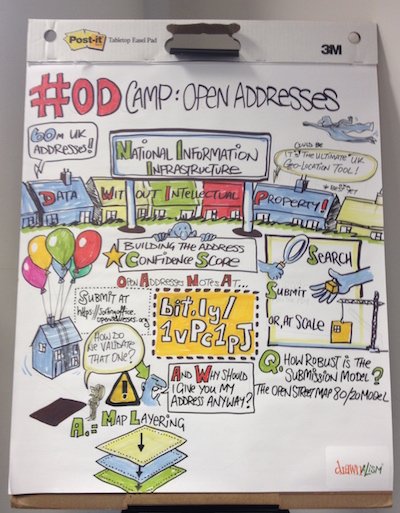 Post-it Tabletop Easel Pad
3M
#OD CAMP: OPEN ADDRESSES
60M UK
ADDRESSES!!
NATIONAL INFORMATION
INFRASTRUCTURE
COULD BE
IT'S THE ULTIMATE UK
GEO-LOCATION TOOL!
DATA WITHOUT INTELLECTUAL PROPERTY!
BUILDING THE ADDRESS
CONFIDENCE SCORE
OPEN ADDRESSES NOTES AT...
SUBMIT AT
bit.ly/
1vPC1PJ
SEARCH
SUBMIT
OR, AT SCALE
HOW DO
WE VALIDATE
THAT ONE?
AND WHY SHOULD
I GIVE YOU MY
ADDRESS ANYWAY?
Q. HOW ROBUST IS THE
SUBMISSION MODEL?
THE OPEN STREET MAP 80/20 MODEL
A.= MAP LAYERING
drawnalism